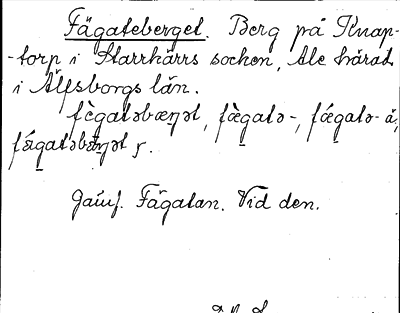 Fägateberget. Berg på Knap-
-torp i Starrkärrs socken, Ale härad
i Älfsborgs län.
fègatəbæŋət, fæ̀gatə-, fǽgatə- å,
fǽgatəbæŋət ſ.
Jämf. Fägatan. Vid den.